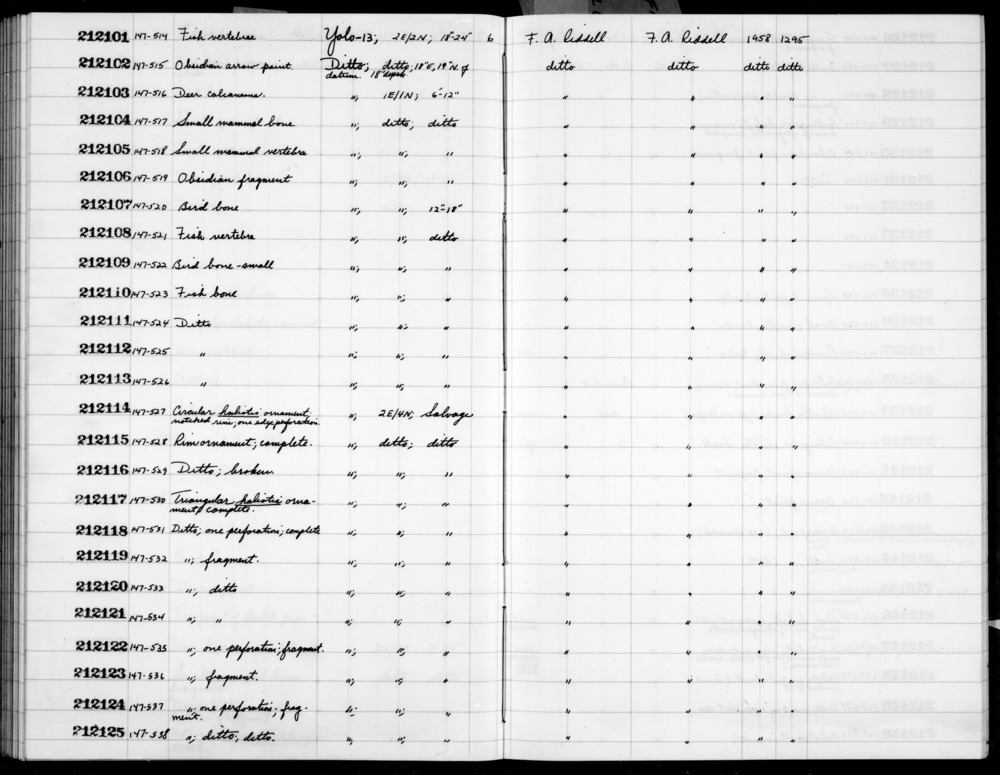 212101 147-514 Fish vertebrae Yolo-13; 2E/2N; 18-24" 6 F. A. Riddell F. A. Riddell 1958 1295
212102 147-515 Obsidian arrow point Ditto; ditto; 18"E, 19"N. of datum. 18" depth. ditto ditto ditto ditto
212103 147-516 Deer calcaneum. "; 1E/1N; 6-12" " " " "
212104 147-517 Small mammal bone "; ditto; ditto " " " "
212105 147-518 Small mammal vertebra "; "; " " " " "
212106 147-519 Obsidian fragment "; "; " " " " "
212107 147-520 Bird bone "; "; 12"-18" " " " "
212108 147-521 Fish vertebra "; "; ditto " " " "
212109 147-522 Bird bone - small "; "; " " " " "
212110 147-523 Fish bone "; "; " " " " "
212111 147-524 Ditto "; "; " " " " "
212112 147-525 " "; "; " " " " "
212113 147-526 " "; "; " " " " "
212114 147-527 Circular haliotis ornament; notched rim; one edge perforation. "; 2E/4N; Salvage " " " "
212115 147-528 Rim ornament; complete. "; ditto; ditto " " " "
212116 147-529 Ditto; broken "; "; " " " " "
212117 147-530 Triangular haliotis orna-
ment; complete. "; "; " " " " "
212118 147-531 Ditto; one perforation; complete "; "; " " " " "
212119 147-532 "; fragment. "; "; " " " " "
212120 147-533 "; ditto "; "; " " " " "
212121 147-534 "; " "; "; " " " " "
212122 147-535 "; one perforation; fragment. "; "; " " " " "
212123 147-536 "; fragment. "; "; " " " " "
212124 147-537 "; one perforation; frag-
ment. "; "; " " " " "
212125 147-538 "; ditto; ditto. "; "; " " " " "